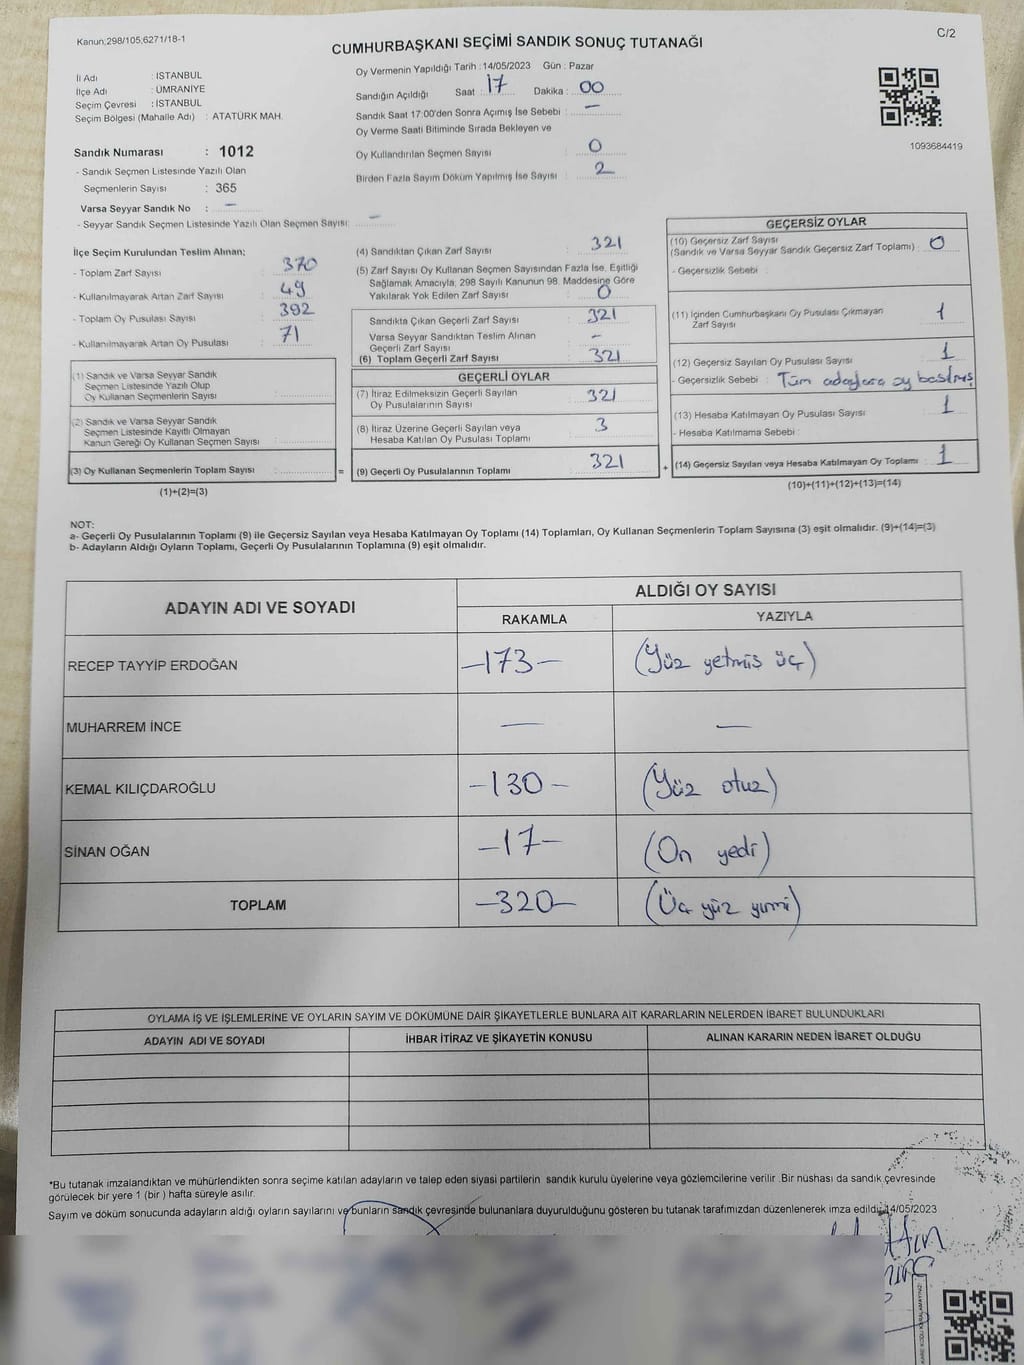 Kanun;298/105,6271/18-1
C/2
CUMHURBAŞKANI SEÇİMİ SANDIK SONUÇ TUTANAĞI
İl Adı : İSTANBUL
İlçe Adı : ÜMRANİYE
Seçim Çevresi : İSTANBUL
Seçim Bölgesi (Mahalle Adı) : ATATÜRK MAH.
Sandık Numarası : 1012
- Sandık Seçmen Listesinde Yazılı Olan
Seçmenlerin Sayısı : 365
Varsa Seyyar Sandık No : –
- Seyyar Sandık Seçmen Listesinde Yazılı Olan Seçmen Sayısı: –
Oy Vermenin Yapıldığı Tarih : 14/05/2023 Gün : Pazar
Sandığın Açıldığı Saat : 17 Dakika : 00
Sandık Saat 17:00'den Sonra Açımış İse Sebebi : –
Oy Verme Saati Bitiminde Sırada Bekleyen ve
Oy Kullandırılan Seçmen Sayısı : 0
Birden Fazla Sayım Döküm Yapılmış İse Sayısı : 2
1093684419
İlçe Seçim Kurulundan Teslim Alınan;
- Toplam Zarf Sayısı : 370
- Kullanılmayarak Artan Zarf Sayısı : 49
- Toplam Oy Pusulası Sayısı : 392
- Kullanılmayarak Artan Oy Pusulası : 71
(1) Sandık ve Varsa Seyyar Sandık
Seçmen Listesinde Yazılı Olup
Oy Kullanan Seçmenlerin Sayısı :
(2) Sandık ve Varsa Seyyar Sandık
Seçmen Listesinde Kayıtlı Olmayan
Kanun Gereği Oy Kullanan Seçmen Sayısı :
(3) Oy Kullanan Seçmenlerin Toplam Sayısı :
(1)+(2)=(3)
=
(4) Sandıktan Çıkan Zarf Sayısı : 321
(5) Zarf Sayısı Oy Kullanan Seçmen Sayısından Fazla İse, Eşitliği
Sağlamak Amacıyla, 298 Sayılı Kanunun 98. Maddesine Göre
Yakılarak Yok Edilen Zarf Sayısı : 0
Sandıkta Çıkan Geçerli Zarf Sayısı : 321
Varsa Seyyar Sandıktan Teslim Alınan
Geçerli Zarf Sayısı : –
(6) Toplam Geçerli Zarf Sayısı : 321
GEÇERLİ OYLAR
(7) İtiraz Edilmeksizin Geçerli Sayılan
Oy Pusulalarının Sayısı : 321
(8) İtiraz Üzerine Geçerli Sayılan veya
Hesaba Katılan Oy Pusulası Toplamı : 3
(9) Geçerli Oy Pusulalarının Toplamı : 321
+
GEÇERSİZ OYLAR
(10) Geçersiz Zarf Sayısı
(Sandık ve Varsa Seyyar Sandık Geçersiz Zarf Toplamı) : 0
- Geçersizlik Sebebi :
(11) İçinden Cumhurbaşkanı Oy Pusulası Çıkmayan
Zarf Sayısı : 1
(12) Geçersiz Sayılan Oy Pusulası Sayısı : 1
- Geçersizlik Sebebi : Tüm adaylara oy basılmış
(13) Hesaba Katılmayan Oy Pusulası Sayısı : 1
- Hesaba Katılmama Sebebi :
(14) Geçersiz Sayılan veya Hesaba Katılmayan Oy Toplamı : 1
(10)+(11)+(12)+(13)=(14)
NOT:
a- Geçerli Oy Pusulalarının Toplamı (9) ile Geçersiz Sayılan veya Hesaba Katılmayan Oy Toplamı (14) Toplamları, Oy Kullanan Seçmenlerin Toplam Sayısına (3) eşit olmalıdır. (9)+(14)=(3)
b- Adayların Aldığı Oyların Toplamı, Geçerli Oy Pusulalarının Toplamına (9) eşit olmalıdır.
ADAYIN ADI VE SOYADI ALDIĞI OY SAYISI
RAKAMLA YAZIYLA
RECEP TAYYİP ERDOĞAN –173– (Yüz yetmiş üç)
MUHARREM İNCE — —
KEMAL KILIÇDAROĞLU –130– (Yüz otuz)
SİNAN OĞAN –17– (On yedi)
TOPLAM –320– (Üç yüz yirmi)
OYLAMA İŞ VE İŞLEMLERİNE VE OYLARIN SAYIM VE DÖKÜMÜNE DAİR ŞİKAYETLERLE BUNLARA AİT KARARLARIN NELERDEN İBARET BULUNDUKLARI
ADAYIN ADI VE SOYADI İHBAR İTİRAZ VE ŞİKAYETİN KONUSU ALINAN KARARIN NEDEN İBARET OLDUĞU
*Bu tutanak imzalandıktan ve mühürlendikten sonra seçime katılan adayların ve talep eden siyasi partilerin sandık kurulu üyelerine veya gözlemcilerine verilir. Bir nüshası da sandık çevresinde
görülecek bir yere 1 (bir ) hafta süreyle asılır.
Sayım ve döküm sonucunda adayların aldığı oyların sayılarını ve bunların sandık çevresinde bulunanlara duyurulduğunu gösteren bu tutanak tarafımızdan düzenlenerek imza edildi. 14/05/2023